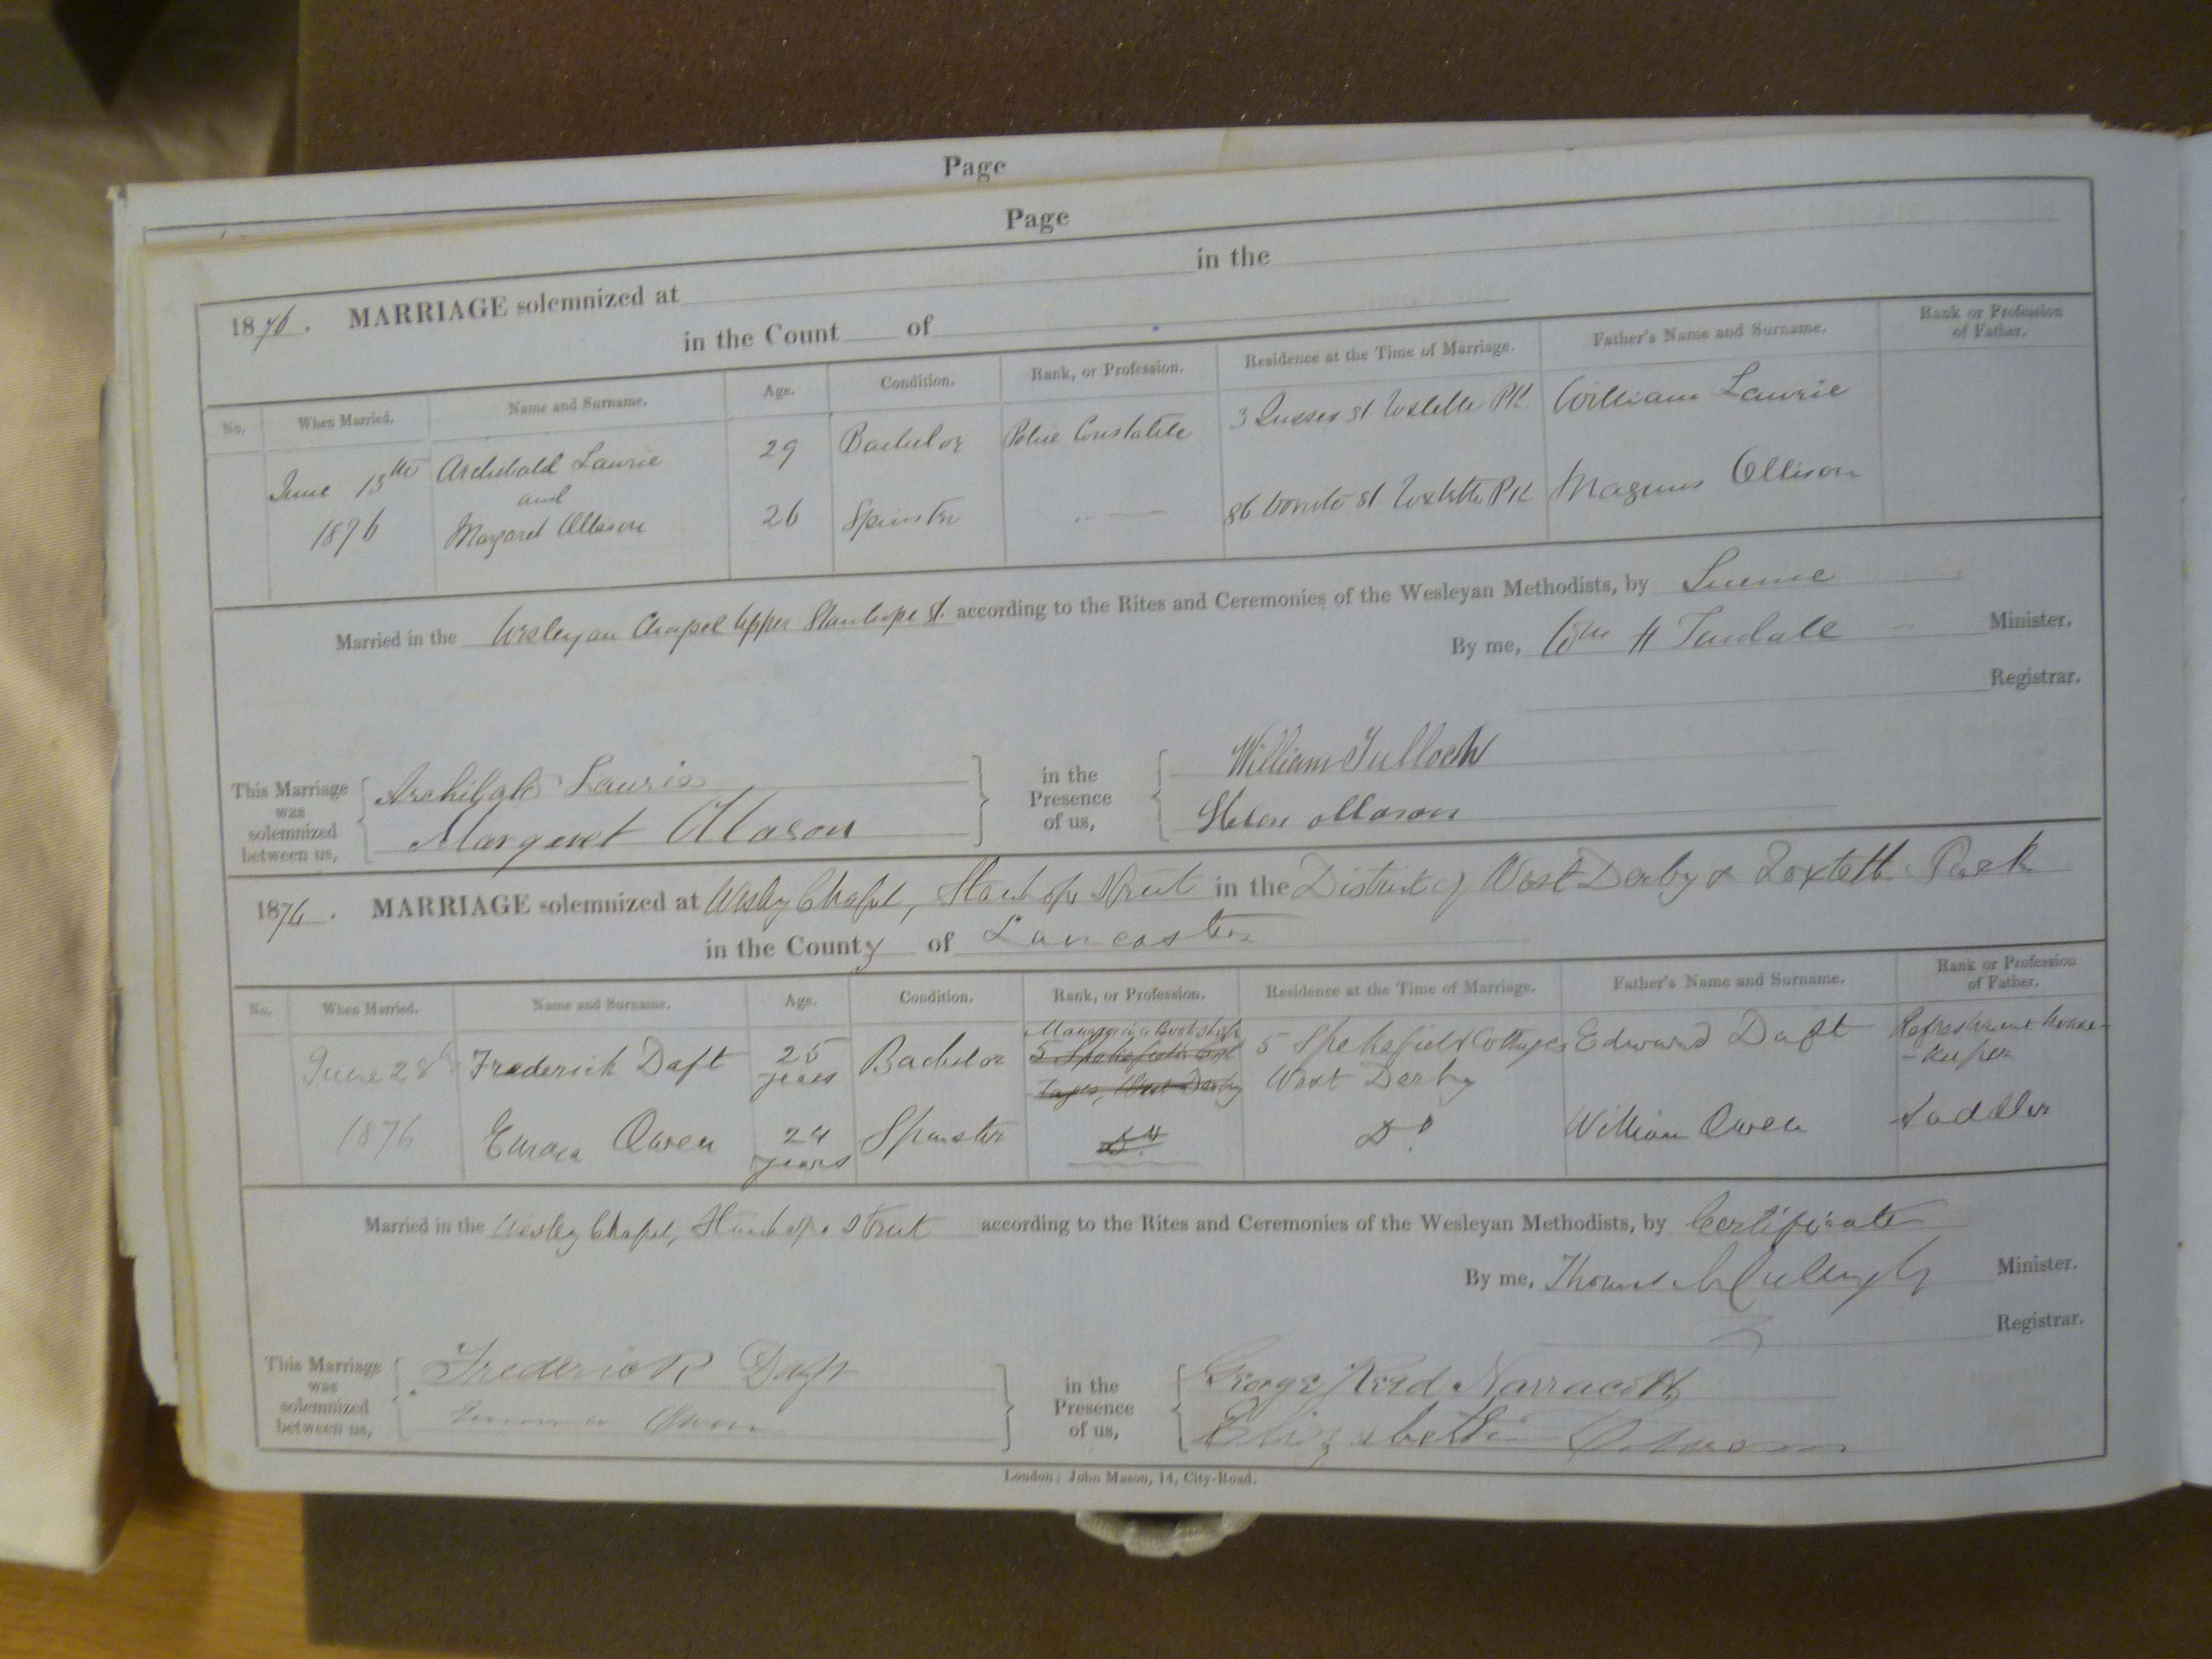 Page
Page
1876. MARRIAGE solemnized at in the
in the Count of
No. When Married. Name and Surname. Age. Condition. Rank, or Profession. Residence at the Time of Marriage. Father's Name and Surname. Rank or Profession of Father.
June 13th Archibald Laurie 29 Bachelor Police Constable 3 Sussex St Toxteth PK. William Laurie
and
1876 Margaret Ollason 26 Spinster 86 St Toxteth PK Magnus Ollison
Married in the Wesleyan Chapel Upper Stanhope St. according to the Rites and Ceremonies of the Wesleyan Methodists, by License
By me, Wm H Tindall Minister.
Registrar.
This Marriage was solemnized between us,
Archibald Laurie
Margaret Ollason
in the Presence of us,
William Tulloch
Helen ollason
1876. MARRIAGE solemnized at Wesley Chapel, Stanhope Street in the District of West Derby & Toxteth Park
in the County of Lancaster
No. When Married. Name and Surname. Age. Condition. Rank, or Profession. Residence at the Time of Marriage. Father's Name and Surname. Rank or Profession of Father.
June 28th Frederick Daft 25 years Bachelor Managing a Boot Shop 5 Spekefield Cottages West Derby Edward Daft Refreshment house-keeper
5 Spekefield Cottages, West Derby
1876 Emma Owen 24 years Spinster Do Do William Owen Saddler
Married in the Wesley Chapel, Stanhope Street according to the Rites and Ceremonies of the Wesleyan Methodists, by Certificate
By me, Thomas McCullagh Minister.
Registrar.
This Marriage was solemnized between us,
Frederick Daft
Emma Owen
in the Presence of us,
George Reed Narracott
Elizabeth
London: John Mason, 14, City-Road.